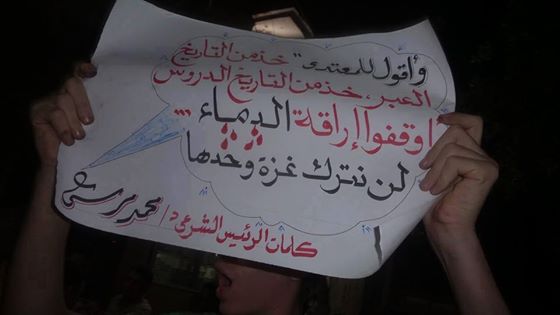 وأقول للمعتدي" خذ من التاريخ
العبر، خذ من التاريخ الدروس
اوقفوا إراقة الدماء
لن نترك غزة وحدها
كلمات الرئيس الشرعي د/ محمد مرسي